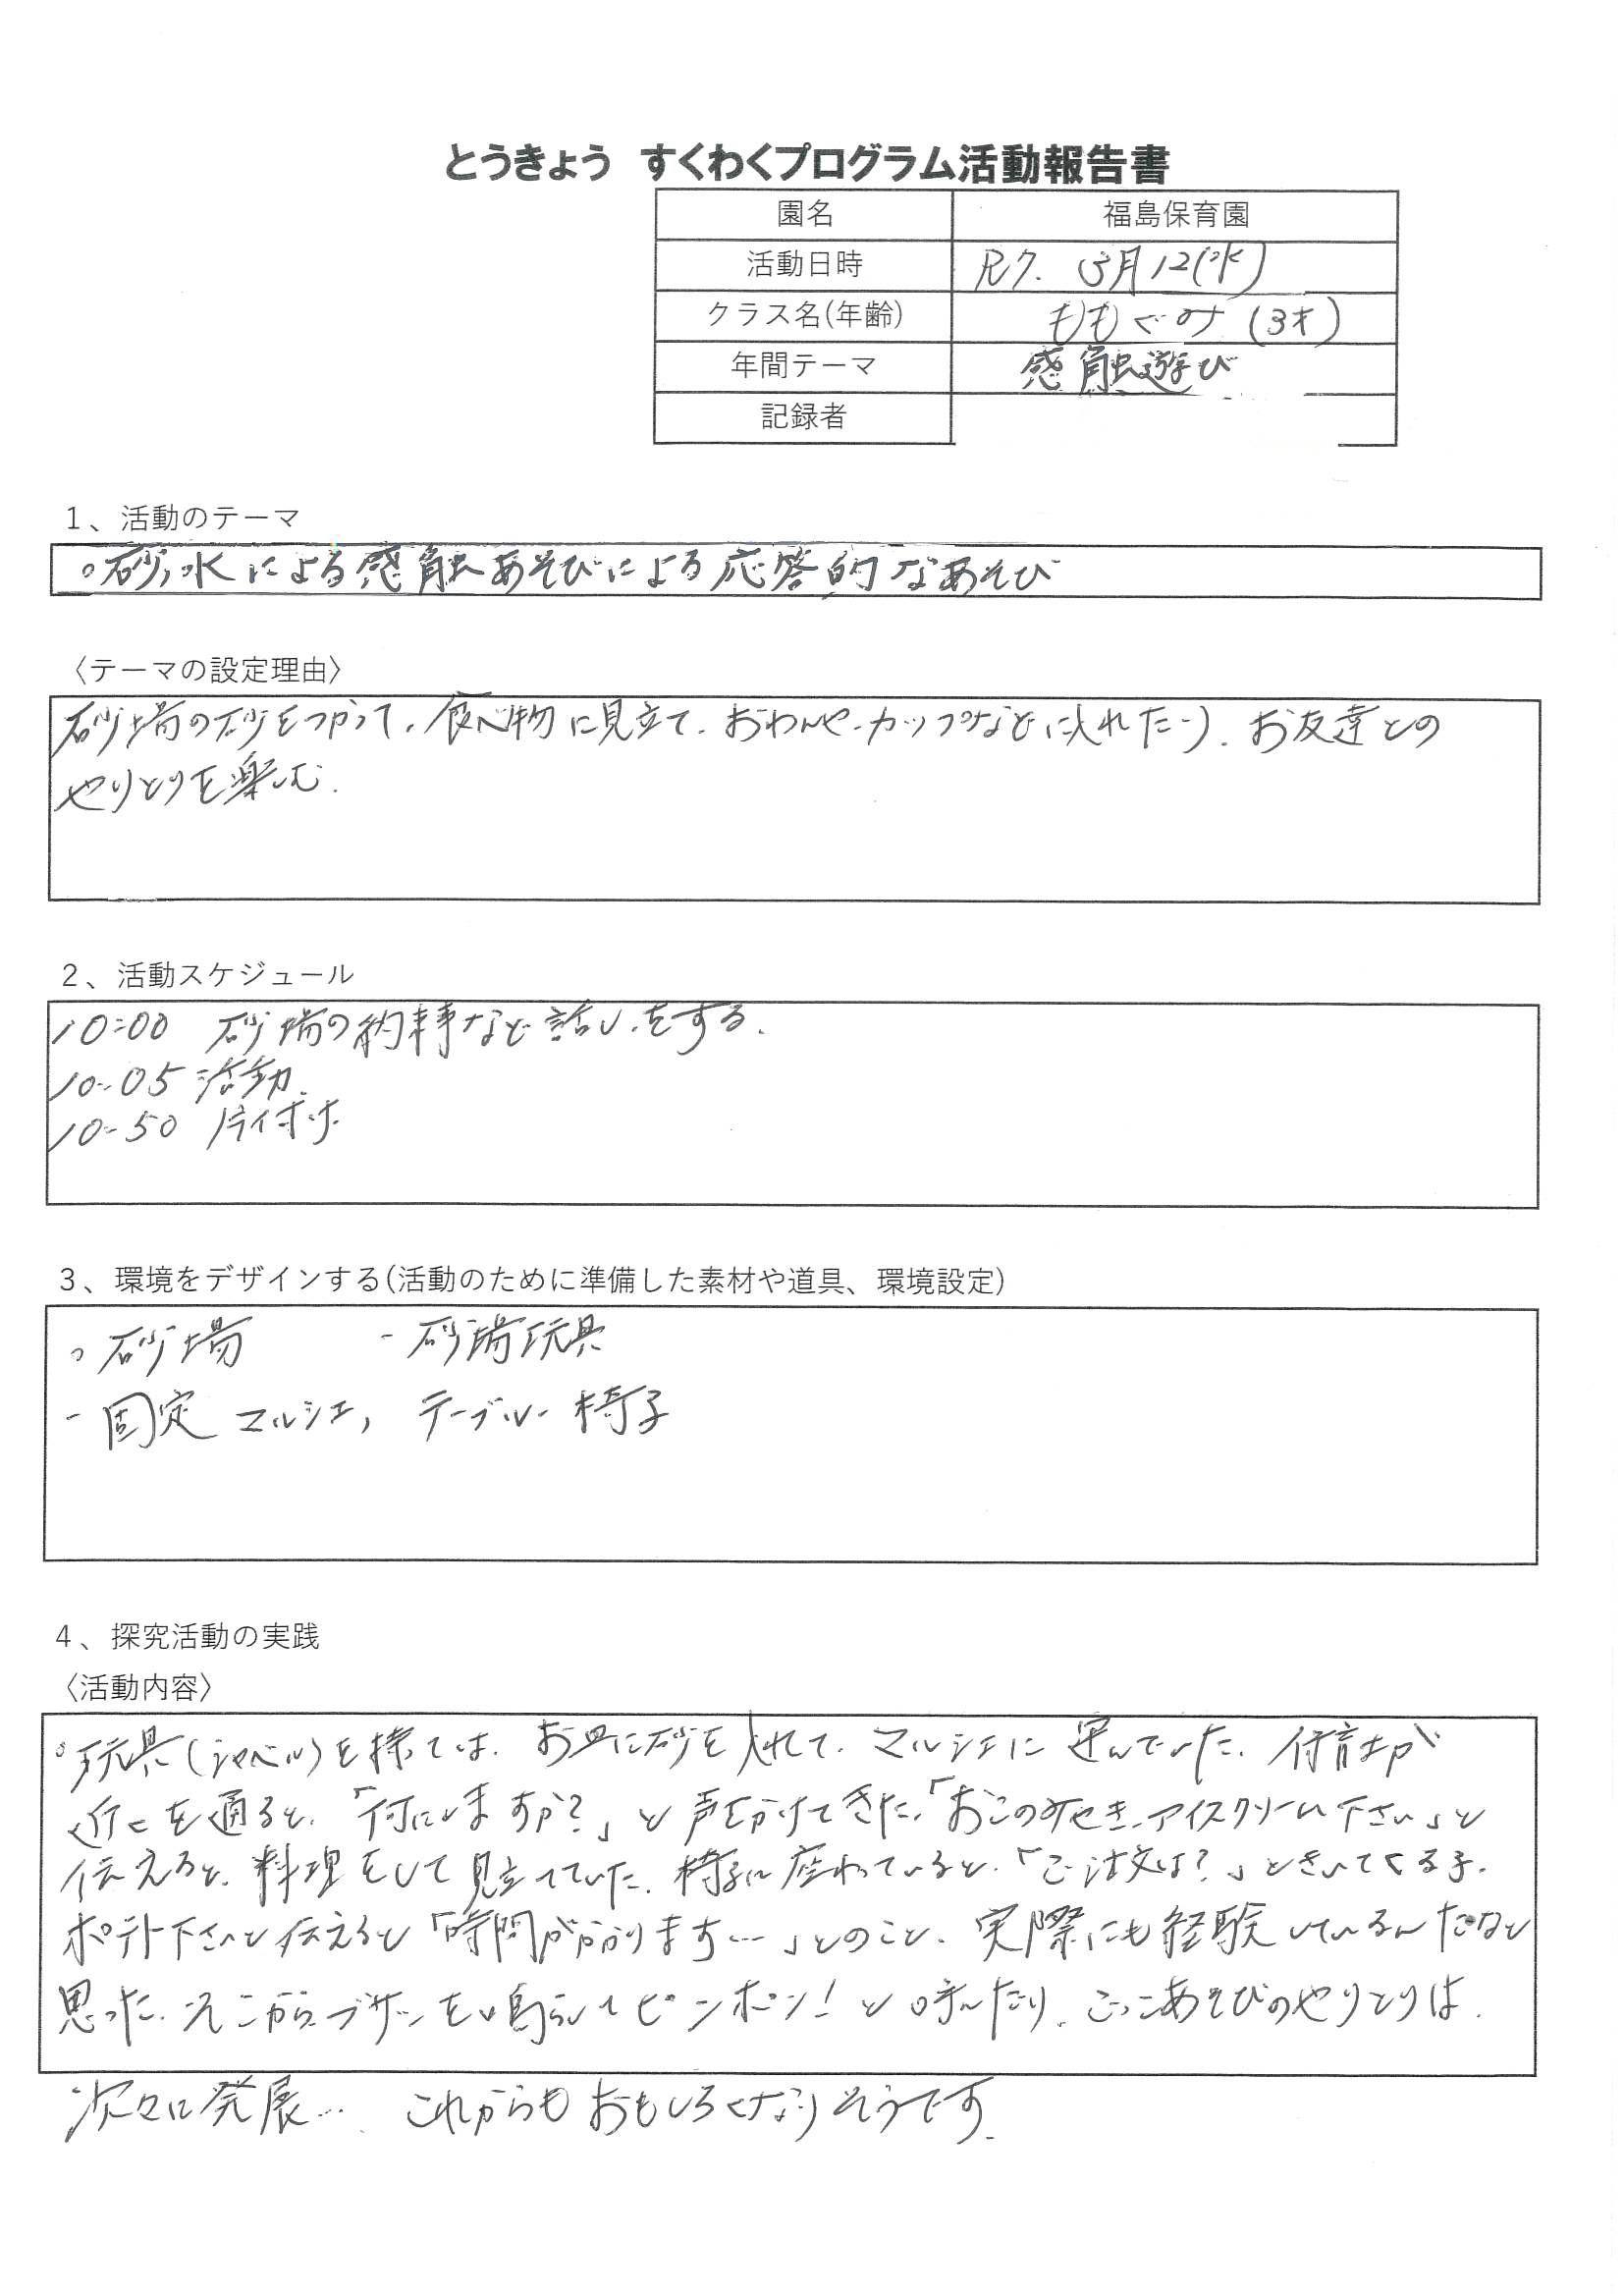 とうきょう　すくわくプログラム活動報告書
園名　福島保育園
活動日時　R7. 3月12(水)
クラス名(年齢)　ももぐみ (3才)
年間テーマ　感触遊び
記録者
1、活動のテーマ
。砂,水による感触あそびによる応答的なあそび
〈テーマの設定理由〉
砂場の砂をつかって、食べ物に見立て、おわんや、カップなどに入れたり、お友達との
やりとりを楽しむ.
2、活動スケジュール
10:00 砂場の約束事など話しをする.
10:05 活動.
10:50 片付け.
3、環境をデザインする(活動のために準備した素材や道具、環境設定)
。砂場 ・砂場玩具
・固定マルシェ, テーブル・椅子
4、探究活動の実践
〈活動内容〉
。玩具(シャベル)を探しては、お皿に砂を入れて、マルシェに運んでいた. 保育士が
近くを通ると、「何にしますか?」と声をかけてきた.「おこのみやき、アイスクリーム下さい」と
伝えると、料理をして見立てていた. 椅子に座わっていると、「ご注文は?」ときいてくる子.
ポテト下さいと伝えると「時間がかかります…」とのこと、実際にも経験しているんだなと
思った. そこから、ブザーを鳴らしてピンポン!と呼んだり、ごっこあそびのやりとりは、
次々に発展… これからもおもしろくなりそうです.